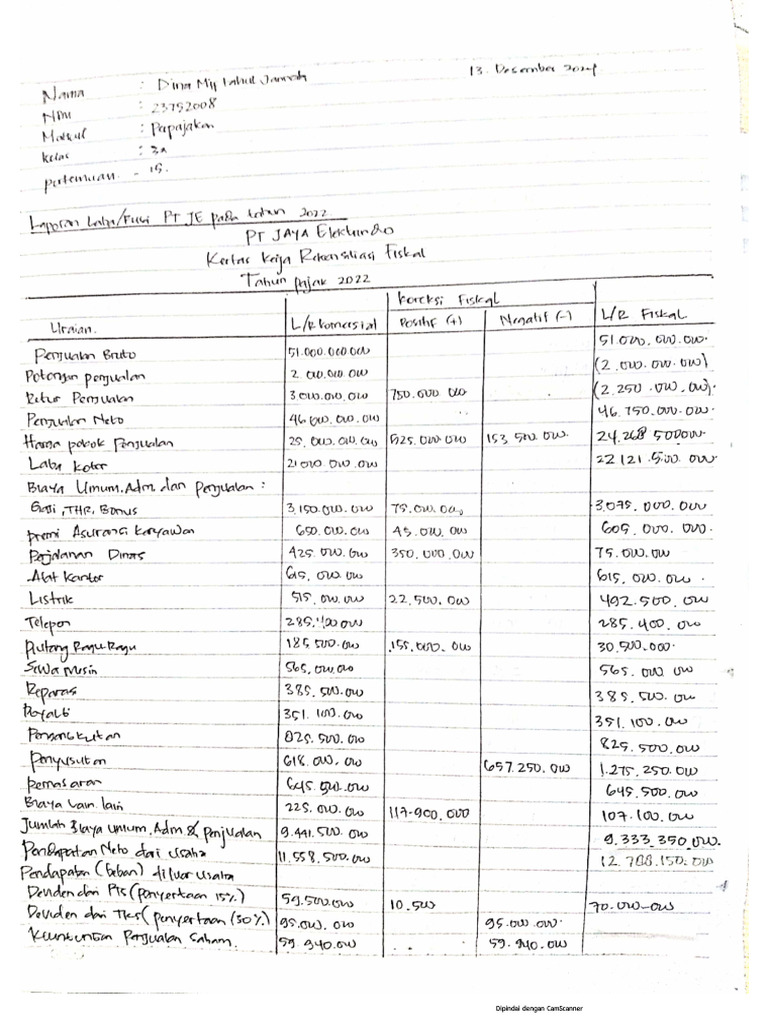 13. Desember 2024
Nama : Dina Miftahul Jannah
NPM : 23752008
Matkul : Papajakan
kelas : 3A
pertemuan - 15.
Laporan Laba/Rugi PT JE pada tahun 2022
PT JAYA Elektrindo
Kertas Kerja Rekonsiliasi Fiskal
Tahun pajak 2022
Koreksi Fiskal
Uraian. L/R Komersial Positif (+) Negatif (-) L/R Fiskal
Penjualan Bruto 51.000.000.000 51.000.000.000.
Potongan penjualan 2.000.000.000 (2.000.000.000)
Retur Penjualan 3.000.000.000 750.000.000 (2.250.000.000).
Penjualan Neto 46.000.000.000 46.750.000.000.
Harga pokok Penjualan 25.000.000.000 525.000.000 153.500.000. 24.268.500.000
Laba kotor 21.000.000.000 22.121.500.000
Biaya Umum, Adm, dan Penjualan :
Gaji, THR, Bonus 3.150.000.000 75.000.000 3.075.000.000
premi Asuransi Karyawan 650.000.000 45.000.000 605.000.000.
Perjalanan Dinas 425.000.000 350.000.000 75.000.000
Alat Kantor 615.000.000 615.000.000.
Listrik 515.000.000 22.500.000 492.500.000
Telepon 285.400.000 285.400.000
Piutang Ragu-Ragu 185.500.000 155.000.000 30.500.000.
Sewa Mesin 565.000.000 565.000.000
Reparasi 385.500.000 385.500.000
Royalti 351.100.000 351.100.000
Pengangkutan 825.500.000 825.500.000
Penyusutan 618.000.000 657.250.000 1.275.250.000
pemasaran 645.500.000 645.500.000
Biaya Lain lain 225.000.000 117.900.000 107.100.000
Jumlah Biaya umum, Adm & Penjualan 9.441.500.000 9.333.350.000.
Pendapatan Neto dari Usaha 11.558.500.000 12.788.150.000
Pendapatan (beban) diluar Usaha
Deviden dari (penyertaan 15%) 59.500.000 10.500 70.000.000
Deviden dari (penyertaan (50%) 95.000.000 95.000.000.
Keuntungan Penjualan Saham. 59.940.000 59.940.000
Dipindai dengan CamScanner